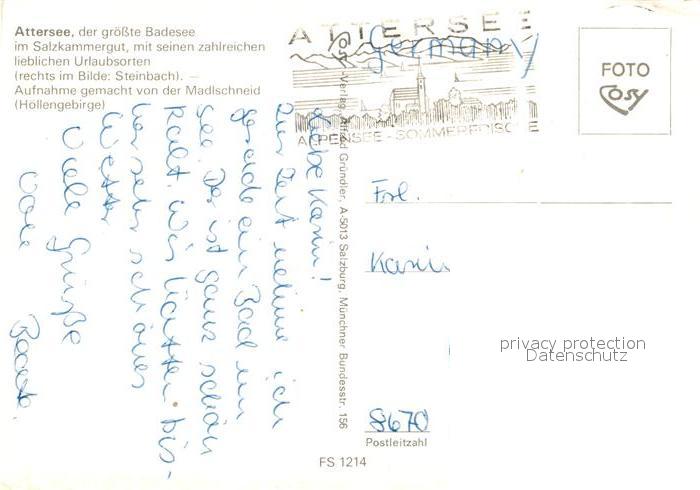 Attersee, der größte Badesee
im Salzkammergut, mit seinen zahlreichen
lieblichen Urlaubsorten
(rechts im Bilde: Steinbach). —
Aufnahme gemacht von der Madlschneid
(Höllengebirge)
ATTERSEE
ALPENSEE - SOMMERFRISCHE
Germany
FOTO
Cosy
Cosy-Verlag, Alfred Gründler, A-5013 Salzburg, Münchner Bundesstr. 156
Liebe Karin!
Zur Zeit nehme ich
gerade ein Bad im
See. Der ist ganz schön
kalt. Wir hatten bis-
her sehr schönes
Wetter.
Viele Grüße
von
Frl.
Karin
privacy protection
Datenschutz
8670
Postleitzahl
FS 1214